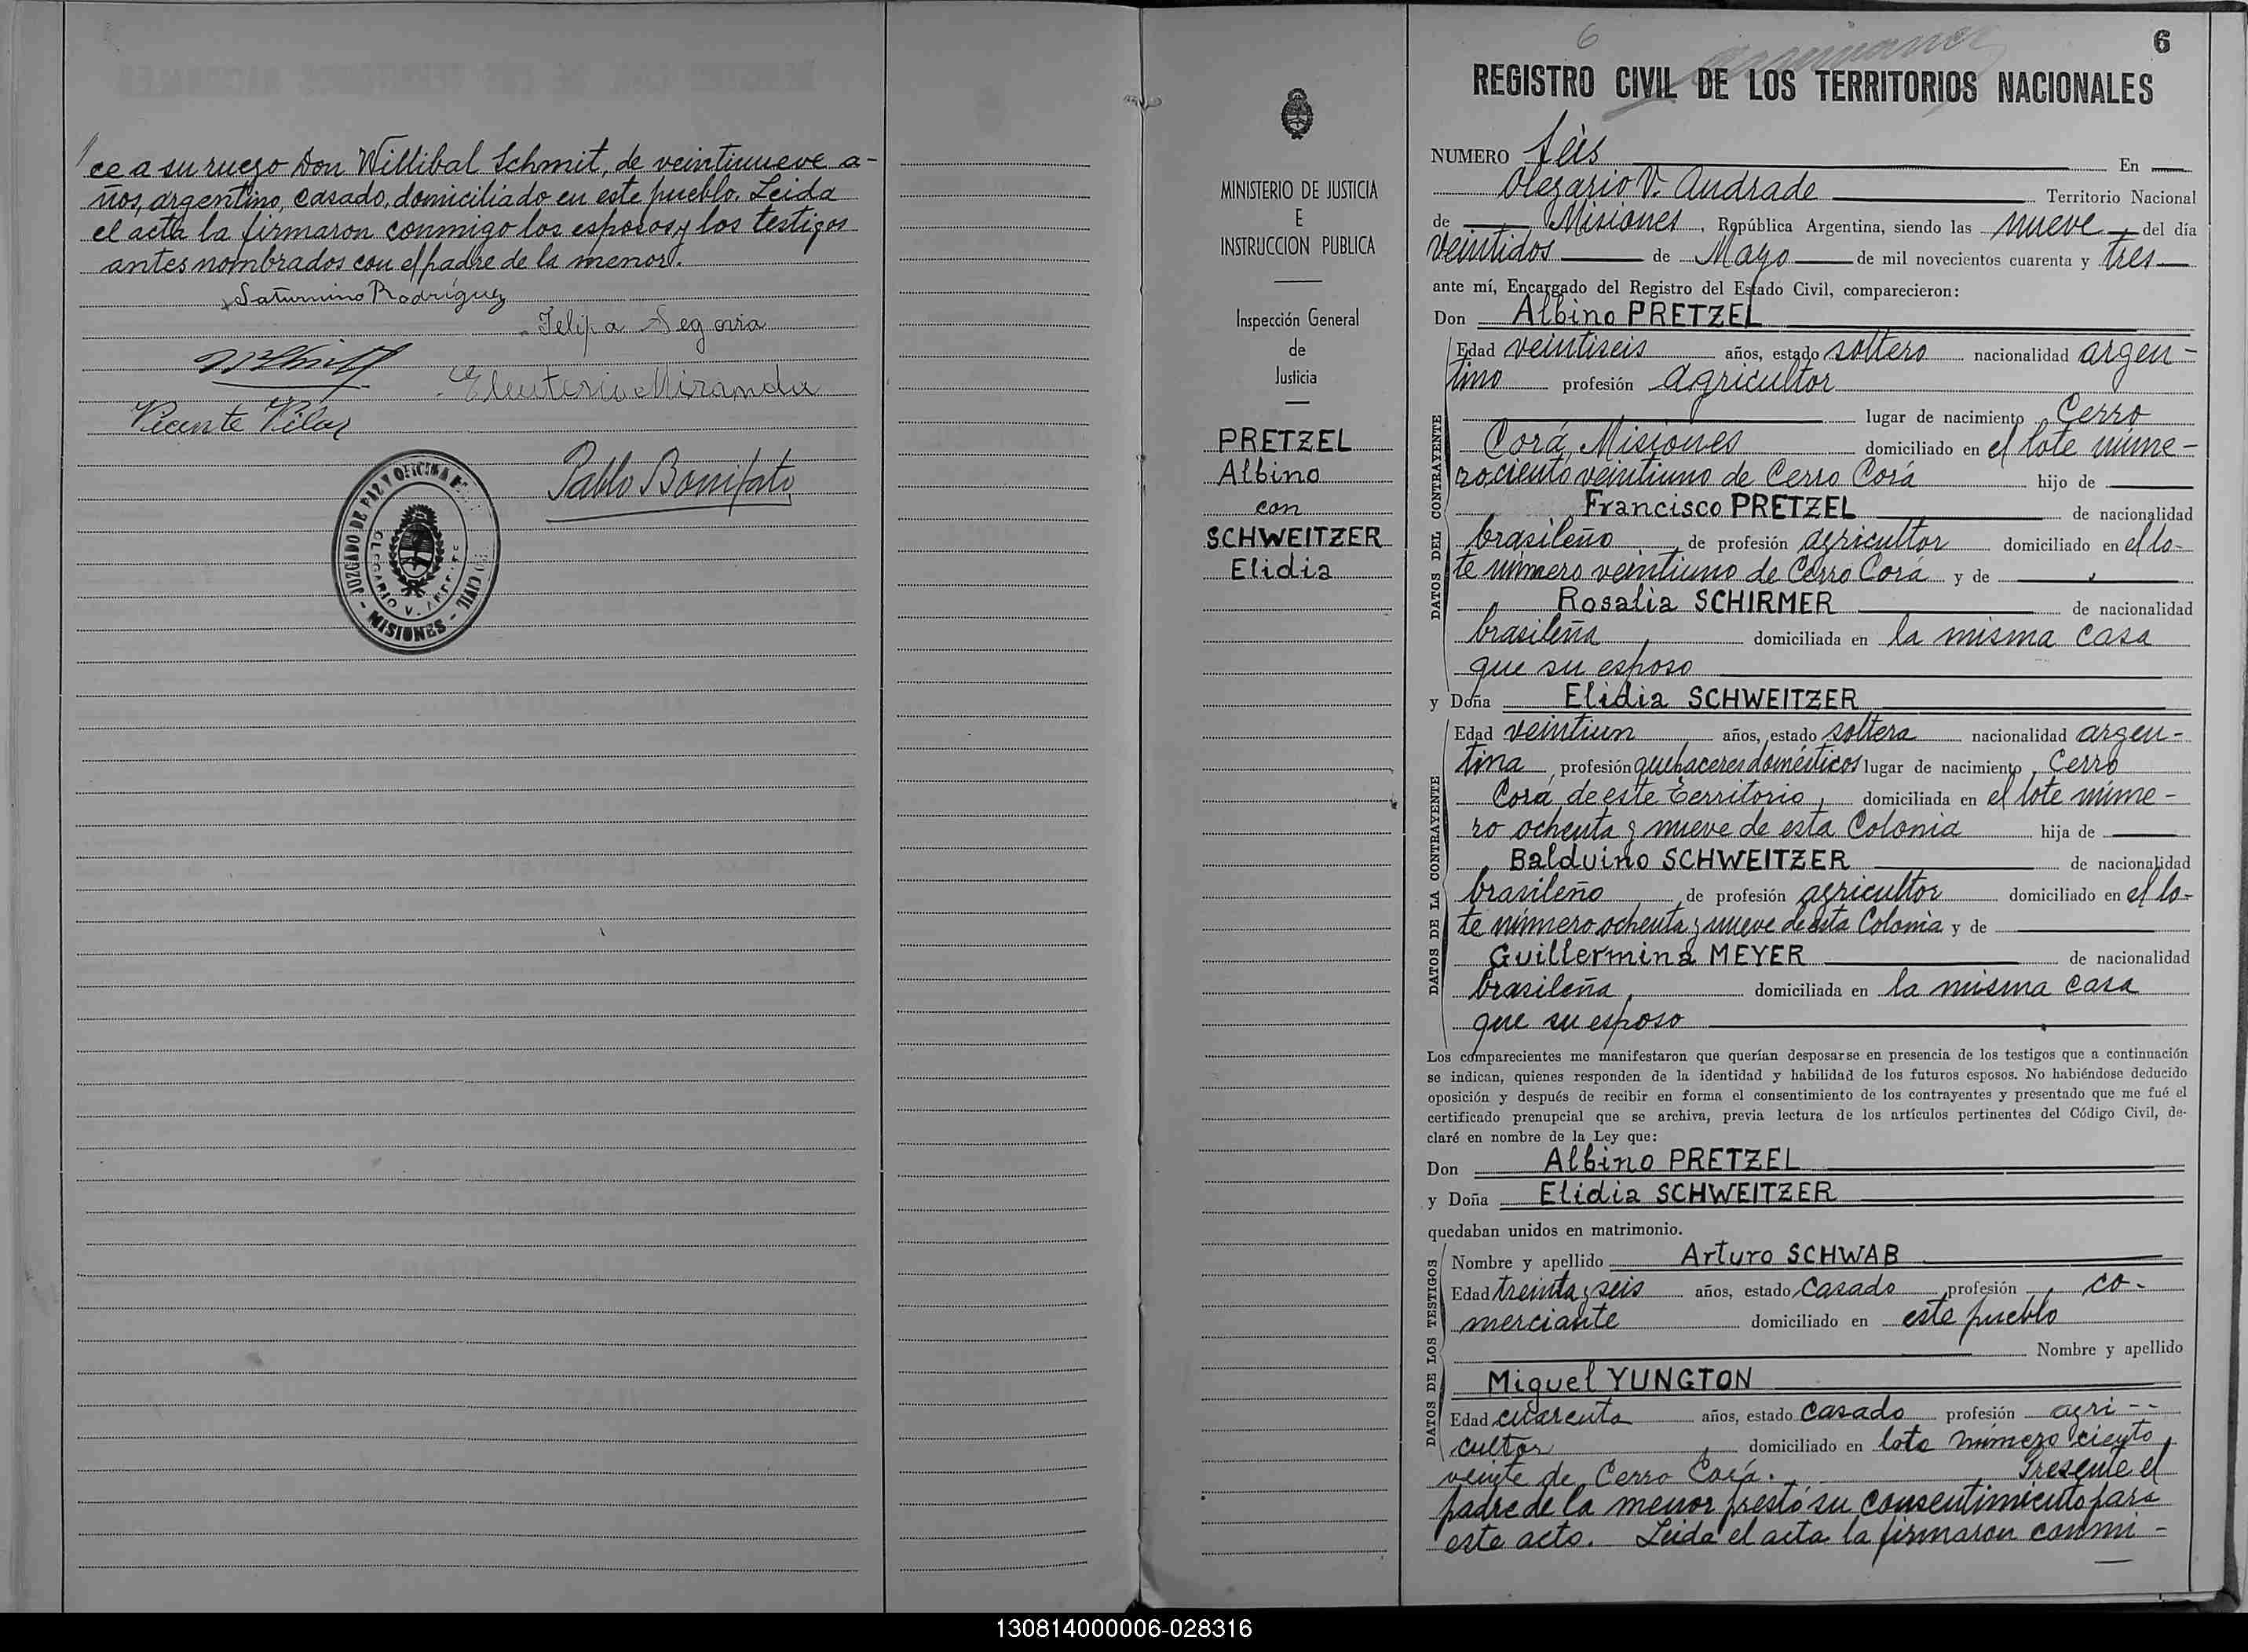 ce a su ruego Don Willibal Schmit, de veintinueve a-
ños, argentino, casado, domiciliado en este pueblo. Leida
el acta la firmaron conmigo los esposos y los testigos
antes nombrados con el padre de la menor.
Saturnino Rodríguez
Felipa Segovia
Eleuterio Miranda
Vicente Vilar
Pablo Bonifato
JUZGADO DE PAZ Y OFICINA
MISIONES
MINISTERIO DE JUSTICIA
E
INSTRUCCION PUBLICA
Inspección General
de
Justicia
PRETZEL
Albino
con
SCHWEITZER
Elidia
6
6
REGISTRO CIVIL DE LOS TERRITORIOS NACIONALES
NUMERO Seis En
Olegario V. Andrade Territorio Nacional
de Misiones, República Argentina, siendo las nueve del día
veintidos de Mayo de mil novecientos cuarenta y tres
ante mí, Encargado del Registro del Estado Civil, comparecieron:
Don Albino PRETZEL
DATOS DEL CONTRAYENTE
Edad veintiseis años, estado soltero nacionalidad argen-
tino profesión agricultor
lugar de nacimiento Cerro
Corá, Misiones domiciliado en el lote núme-
ro ciento veintiuno de Cerro Corá hijo de
Francisco PRETZEL de nacionalidad
brasileño de profesión agricultor domiciliado en el lo-
te número veintiuno de Cerro Corá y de
Rosalia SCHIRMER de nacionalidad
brasileña, domiciliada en la misma casa
que su esposo
y Doña Elidia SCHWEITZER
DATOS DE LA CONTRAYENTE
Edad veintiun años, estado soltera nacionalidad argen-
tina, profesión quehaceres domésticos lugar de nacimiento Cerro
Corá, de este Territorio, domiciliada en el lote núme-
ro ochenta y nueve de esta Colonia hija de
Balduino SCHWEITZER de nacionalidad
brasileño de profesión agricultor domiciliado en el lo-
te número ochenta y nueve de esta Colonia y de
Guillermina MEYER de nacionalidad
brasileña, domiciliada en la misma casa
que su esposo
Los comparecientes me manifestaron que querían desposarse en presencia de los testigos que a continuación
se indican, quienes responden de la identidad y habilidad de los futuros esposos. No habiéndose deducido
oposición y después de recibir en forma el consentimiento de los contrayentes y presentado que me fué el
certificado prenupcial que se archiva, previa lectura de los artículos pertinentes del Código Civil, de-
claré en nombre de la Ley que:
Don Albino PRETZEL
y Doña Elidia SCHWEITZER
quedaban unidos en matrimonio.
DATOS DE LOS TESTIGOS
Nombre y apellido Arturo SCHWAB
Edad treinta y seis años, estado casado profesión co-
merciante domiciliado en este pueblo
Nombre y apellido
Miguel YUNGTON
Edad cuarenta años, estado casado profesión agri--
cultor domiciliado en lote número ciento
veinte de Cerro Corá. Presente el
padre de la menor prestó su consentimiento para
este acto. Leida el acta la firmaron conmi-
130814000006-028316